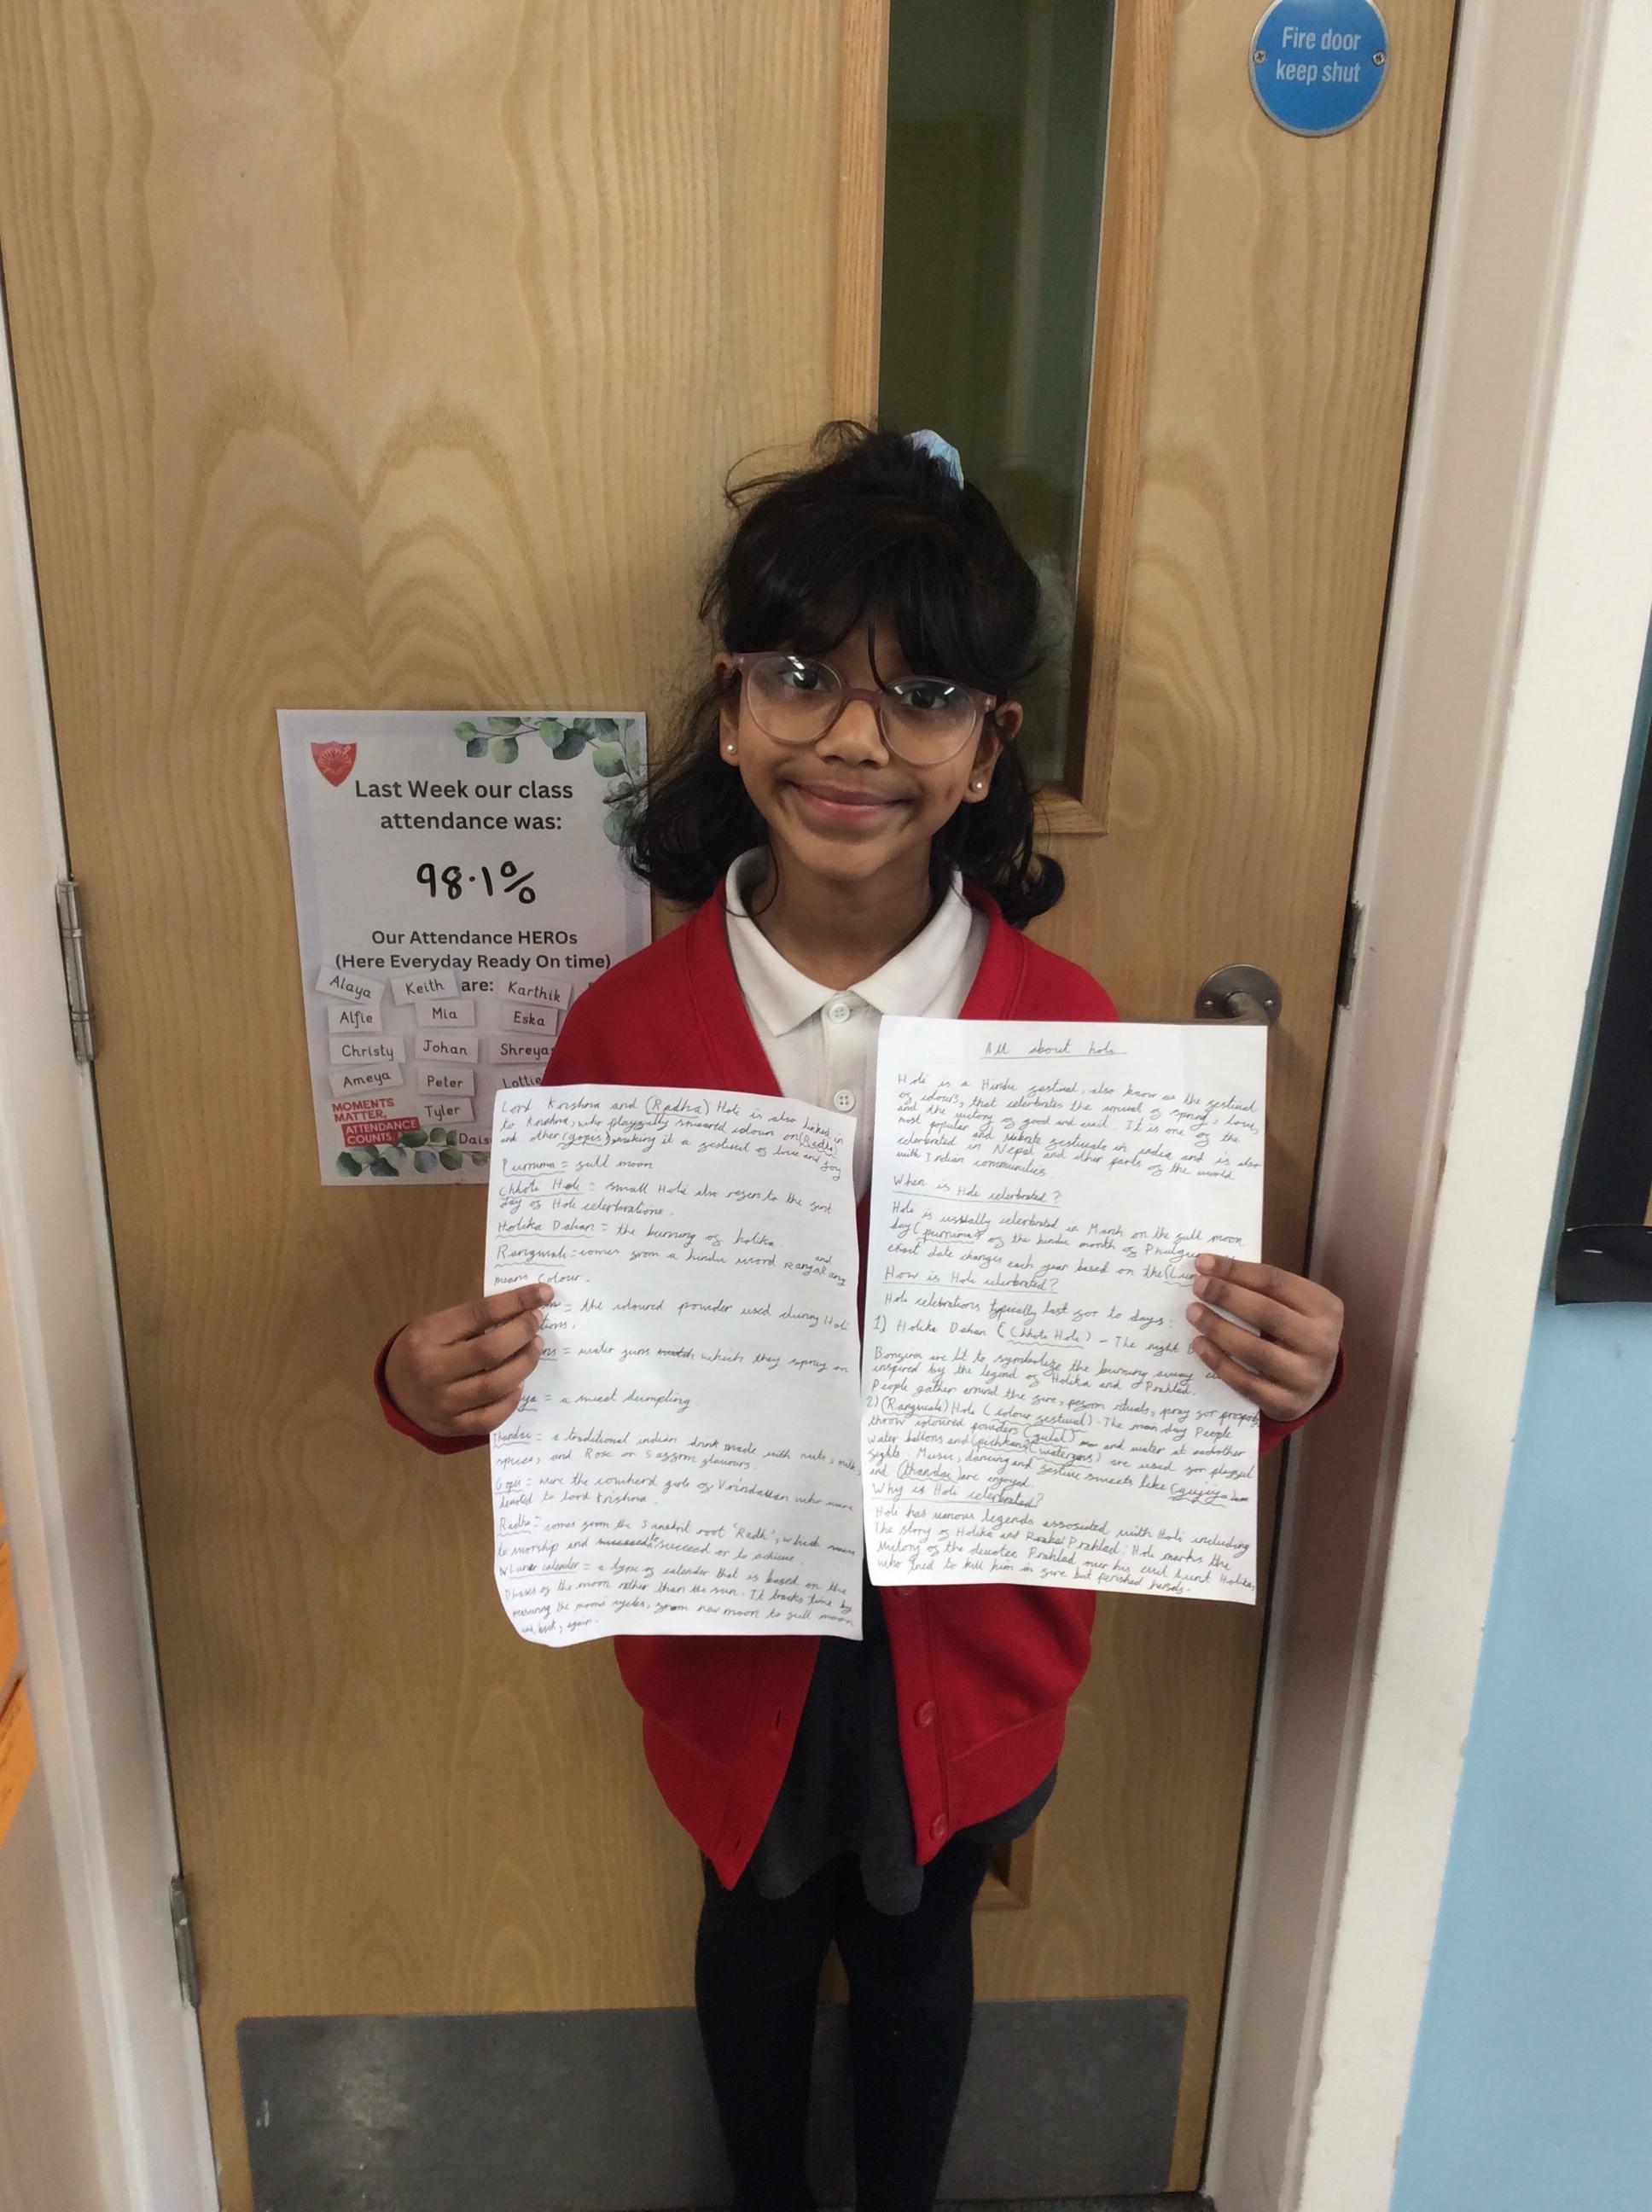 Fire door
keep shut
Last Week our class
attendance was:
98.1%
Our Attendance HEROs
(Here Everyday Ready On time)
are:
Alaya Keith Karthik
Alfie Mia Eska
Christy Johan Shreyas
Ameya Peter Lottie
Tyler
MOMENTS
MATTER,
ATTENDANCE
COUNTS.
Lord Krishna and (Radha) Holi is also linked
to Krishna, who playfully smeared colours on (Radha)
and other (gopis), making it a festival of love and joy
Purnima = full moon
Chhoti Holi = small Holi also refers to the first
day of Holi celebrations.
Holika Dahan = the burning of holika
Rangwali = comes from a hindu word rang and
means colour.
= the coloured powder used during Holi
= water guns which they spray on
= a sweet dumpling
Thandai = a traditional indian drink made with nuts, milk,
spices, and Rose or Saffron flavours.
Gopis = were the cowherd girls of who were
to lord Krishna.
Radha = comes from the Sanskrit root "Radh", which
to worship and succeed or to achieve.
Lunar calender = a type of calender that is based on the
Phases of the moon rather than the sun. It tracks time by
the moons cycles, from new moon to full moon
and back again.
All about holi
Holi is a Hindu festival, also know as the festival
of colours, that celebrates the arrival of spring, love,
and the victory of good and evil. It is one of the
most popular and festivals in india and is also
celerbrated in Nepal and other parts of the world
with Indian communities.
When is Holi celerbrated?
Holi is usually celerbrated in March on the full moon
day (purnima) of the hindu month of
exact date changes each year based on the
How is Holi celerbrated?
Holi celebrations typically last for to days:
1) Holika Dahan (Chhoti Holi) - The night
Bonfires are lit to symbolize the burning away
inspired by the legend of Holika and Prahlad.
People gather around the fire, peform rituals, pray for
2) (Rangwali) Holi (colour festival) - The main day People
throw coloured powders (gulal) and water at eachother
water ballons and (waterguns) are used for playful
fights. Music, dancing and festive sweets like (gujiya)
and (thandai) are enjoyed.
Why is Holi celerbrated?
Holi has various legends with Holi including
The story of Holika and Prahlad: Holi marks the
of the devotee Prahlad over his evil Holika,
who tried to kill him in fire but perished